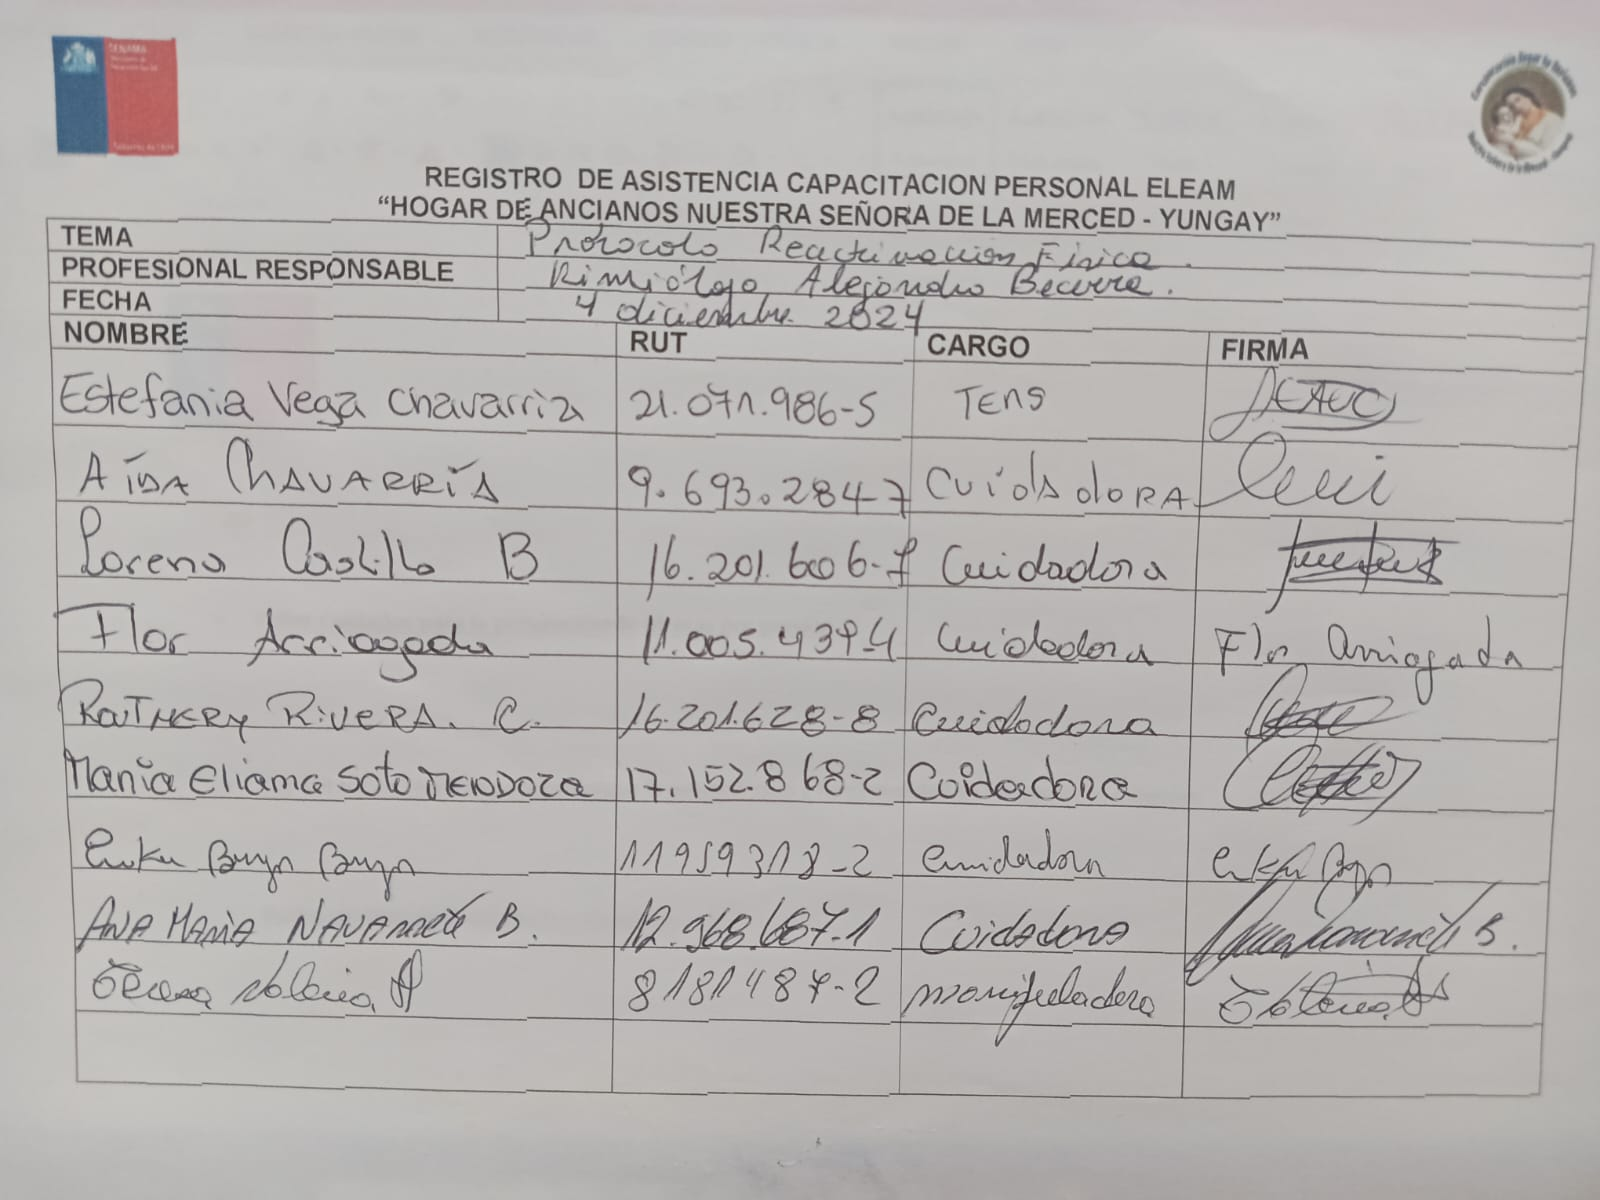 SENAMA
REGISTRO DE ASISTENCIA CAPACITACION PERSONAL ELEAM
“HOGAR DE ANCIANOS NUESTRA SEÑORA DE LA MERCED - YUNGAY”
TEMA Protocolo Reactivacion Física.
PROFESIONAL RESPONSABLE Kimiólogo Alejandro Becerra.
FECHA 4 diciembre 2024
NOMBRE RUT CARGO FIRMA
Estefania Vega Chavarria 21.071.986-5 TENS
AÍDA CHAVARRÍA 9.693.284-7 CUIDADORA
Lorena Castillo B 16.201.606-7 Cuidadora
Flor Arriagada 11.005.437-4 Cuidadora Flor Arriagada
KATHERY RIVERA. C. 16.201.628-8 Cuidadora
Maria Eliama Soto MENDOZA 17.152.868-2 Coidadora
11959318-2 Cuidadora
ANA MARIA NAVARRETE B. 12.968.687-1 Cuidadora
8181487-2 manipuladora